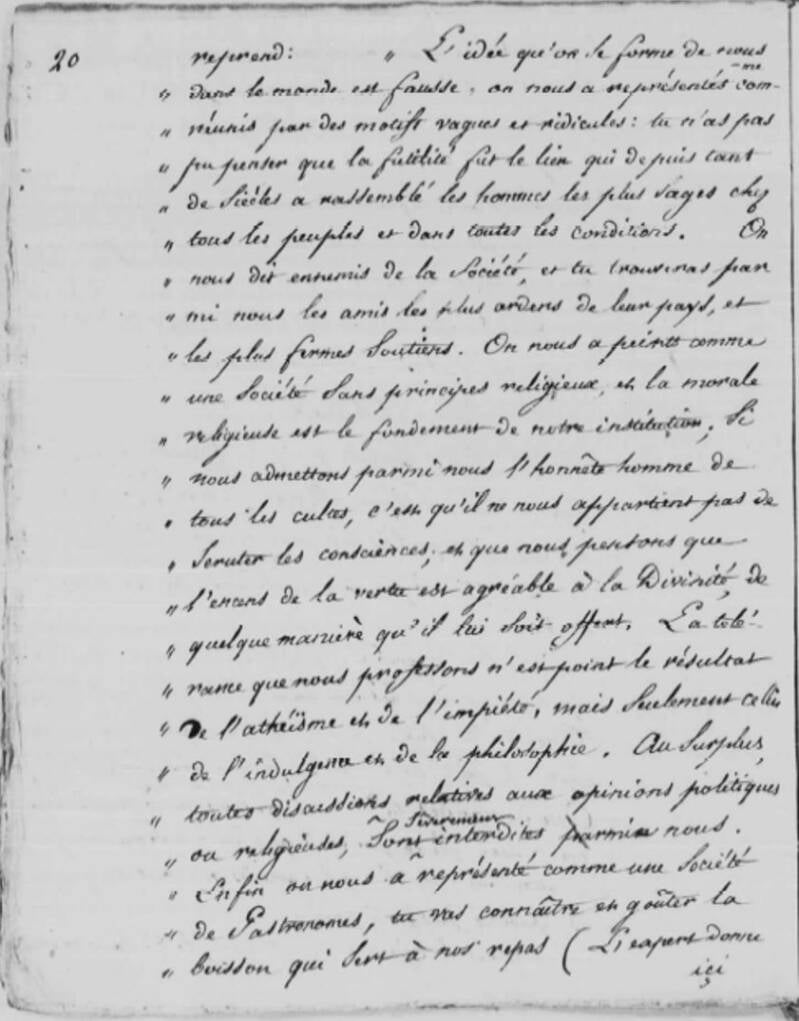 20 reprend: " L'idée qu'on se forme de nous
" dans le monde est fausse, on nous a représentés comme
" réunis par des motifs vagues et ridicules: tu n'as pas
" pu penser que la futilité fut le lien qui depuis tant
" de siécles a rassemblé les hommes les plus sages chez
" tous les peuples et dans toutes les conditions. On
" nous dit ennemis de la Société, et tu trouveras par
" mi nous les amis les plus ardens de leur pays, et
" les plus fermes Soutiens. On nous a peints comme
" une Société Sans principes religieux, et la morale
" religieuse est le fondement de notre institution, Si
" nous admettons parmi nous l'honnête homme de
" tous les cultes, c'est qu'il ne nous appartient pas de
" Scruter les consciences, et que nous pensons que
" l'encens de la vertu est agréable à la Divinité, de
" quelque manière qu'il lui soit offert. La tolé-
" rance que nous professons n'est point le résultat
" de l'athéïsme et de l'impiété, mais Seulement celui
" de l'indulgence et de la philosophie. Au Surplus,
" toutes discussions relatives aux opinions politiques
" ou religieuses, Sont Sévèrement interdites parmi nous.
" Enfin on nous a représenté comme une Société
" de Gastronomes, tu vas connaître et goûter la
" boisson qui Sert à nos repas (L'expert donne
içi